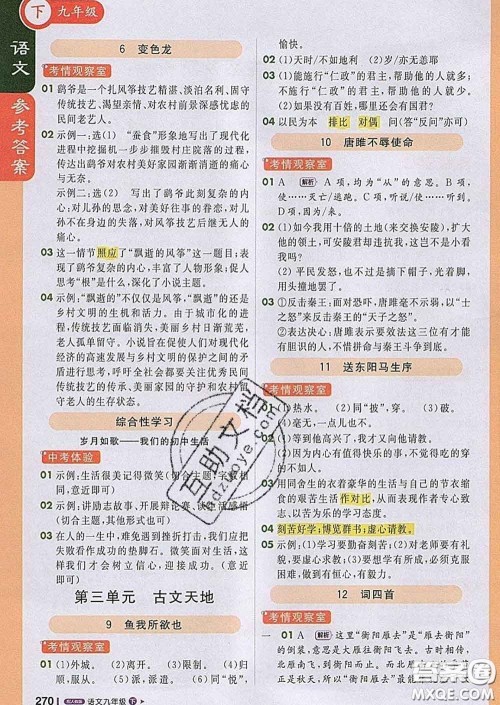 下 九年级
语文
参考答案
6 变色龙
考情观察室
01 鹞爷是一个扎风筝技艺精湛、淡泊名利、固守
传统技艺、渴望亲情、对农村前景深感忧虑的
民间老艺人。
02 示例一:选(1) “蚕食”形象地写出了现代化
进程中挖掘机一步步摧毁村庄院落的过程,
传达出鹞爷对农村美好家园渐渐消逝的痛心
与无奈。
示例二:选(2) 写出了鹞爷此刻复杂的内
心:对儿孙的思念,对美好家园的眷恋,对不
在自己身边的失落,对风筝技艺后继无人的
痛心。
03 这一情节照应了“飘逝的风筝”这一题目;表
现了鹞爷复杂的内心,丰富了人物形象;促人
思考“根”是什么,深化了小说主题。
04 示例:“飘逝”的不仅仅是风筝,“飘逝”的还有
乡村文明的生机和活力。由于城市化的进
程,传统技艺面临消失,美丽乡村日渐荒芜,
老人孤独无依。作者借此引发人们对现代
化经济的高速发展与乡村文明的保护之间矛
盾的反思,呼吁全社会都要关注优秀民间传
统技艺的传承、美丽家园的守护和对留守
老人的生存状态。
综合性学习
岁月如歌——我们的初中生活
中考体验
01 示例:生活很美记得微笑(切合主题,字数相
同,意近即可)
02 示例:讲励志故事、开展辩论赛、谈切身感悟
(切合主题,其他形式也可)
03 在人的一生中,难免遇到挫折打击,只有勇敢
者才能把失败当作成功的垫脚石。微笑面对
生活中出现的各种困难,用心体会生活,这样
我们才会树立自信心,迎接成功。(意近即可)
第三单元 古文天地
9 鱼我所欲也
考情观察室
01 (1)外城。 (2)离开。 (3)边境。 (4)放弃。
(5)归顺。 (6)派,派遣。 (7)同“悦”,
270 配人教版 语文九年级 下
愉快。
02 (1)天时/不如地利 (2)岁/亦无恙耶
03 (1)能施行“仁政”的君主,帮助他的人就多;
不施行“仁政”的君主,帮助他的人就少。
(2)如果没有百姓,哪里还会有国君?
04 以民为本 排比 对偶 问(答“反问”亦可)
10 唐雎不辱使命
考情观察室
01 A 解析 A项,均为“从”的意思。B项,
使……灭亡/逃跑。C项,进献/使……迷惑。
D项,断绝/到达。
02 (1)如今我用十倍的土地(来交换安陵),扩大
安陵君的领土,可安陵君却违抗我,难道不是
轻视我吗?
(2)平民发怒,也不过是摘掉帽子,光着脚,
用头撞地罢了。
03 ①反击秦王:面对恐吓,唐雎毫不示弱,以“士
之怒”来回击秦王的“天子之怒”。
②表达决心:唐雎表示要效法这三位有才能
有胆识的人,不惜拼掉性命与秦王斗争到底。
11 送东阳马生序
考情观察室
01 (1)热水。 (2)同“披”,穿。 (3)破。
(4)毫无,一点儿也。
02 (1)等到他高兴了,我就又去请教。
(2)因为内心有值得快乐的事情,所以不觉
得吃的穿的不如别人。
03 用同舍生的衣着豪华的生活与自己的节衣缩
食的艰苦生活作对比,从而表现作者专心致
志、以苦为乐的学习态度。
04 刻苦好学;博览群书;虚心请教。
05 示例:(1)学习要勤奋刻苦;(2)对老师要有
礼貌,要虚心求教;(3)不要贪图享受,要有
坚定的意志。
12 词四首
考情观察室
一 01 A 解析 这里“衡阳雁去”是“雁去衡阳”
的倒文,是说“雁去衡阳”。
互助文档
hdzuoye.com
答案圈
MXQE.COM